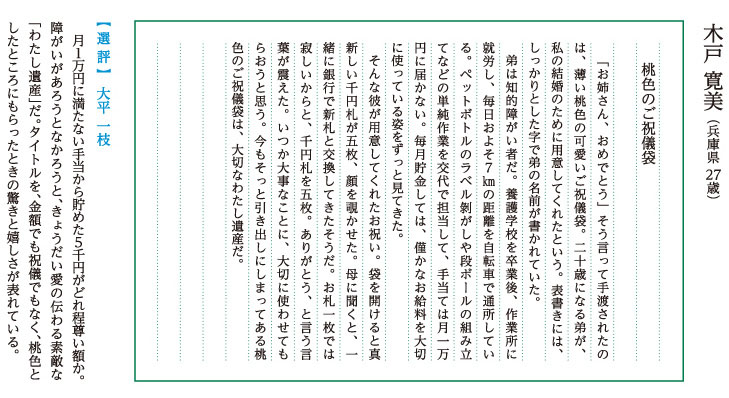 木戸 寛美（兵庫県 27歳）
桃色のご祝儀袋
「お姉さん、おめでとう」そう言って手渡されたの
は、薄い桃色の可愛いご祝儀袋。二十歳になる弟が、
私の結婚のために用意してくれたという。表書きには、
しっかりとした字で弟の名前が書かれていた。
弟は知的障がい者だ。養護学校を卒業後、作業所に
就労し、毎日およそ７㎞の距離を自転車で通所してい
る。ペットボトルのラベル剝がしや段ボールの組み立
てなどの単純作業を交代で担当して、手当ては月一万
円に届かない。毎月貯金しては、僅かなお給料を大切
に使っている姿をずっと見てきた。
そんな彼が用意してくれたお祝い。袋を開けると真
新しい千円札が五枚、顔を覗かせた。母に聞くと、一
緒に銀行で新札と交換してきたそうだ。お札一枚では
寂しいからと、千円札を五枚。ありがとう、と言う言
葉が震えた。いつか大事なことに、大切に使わせても
らおうと思う。今もそっと引き出しにしまってある桃
色のご祝儀袋は、大切なわたし遺産だ。
【選評】 大平 一枝
月１万円に満たない手当から貯めた５千円がどれ程尊い額か。
障がいがあろうとなかろうと、きょうだい愛の伝わる素敵な
「わたし遺産」だ。タイトルを、金額でも祝儀でもなく、桃色と
したところにもらったときの驚きと嬉しさが表れている。